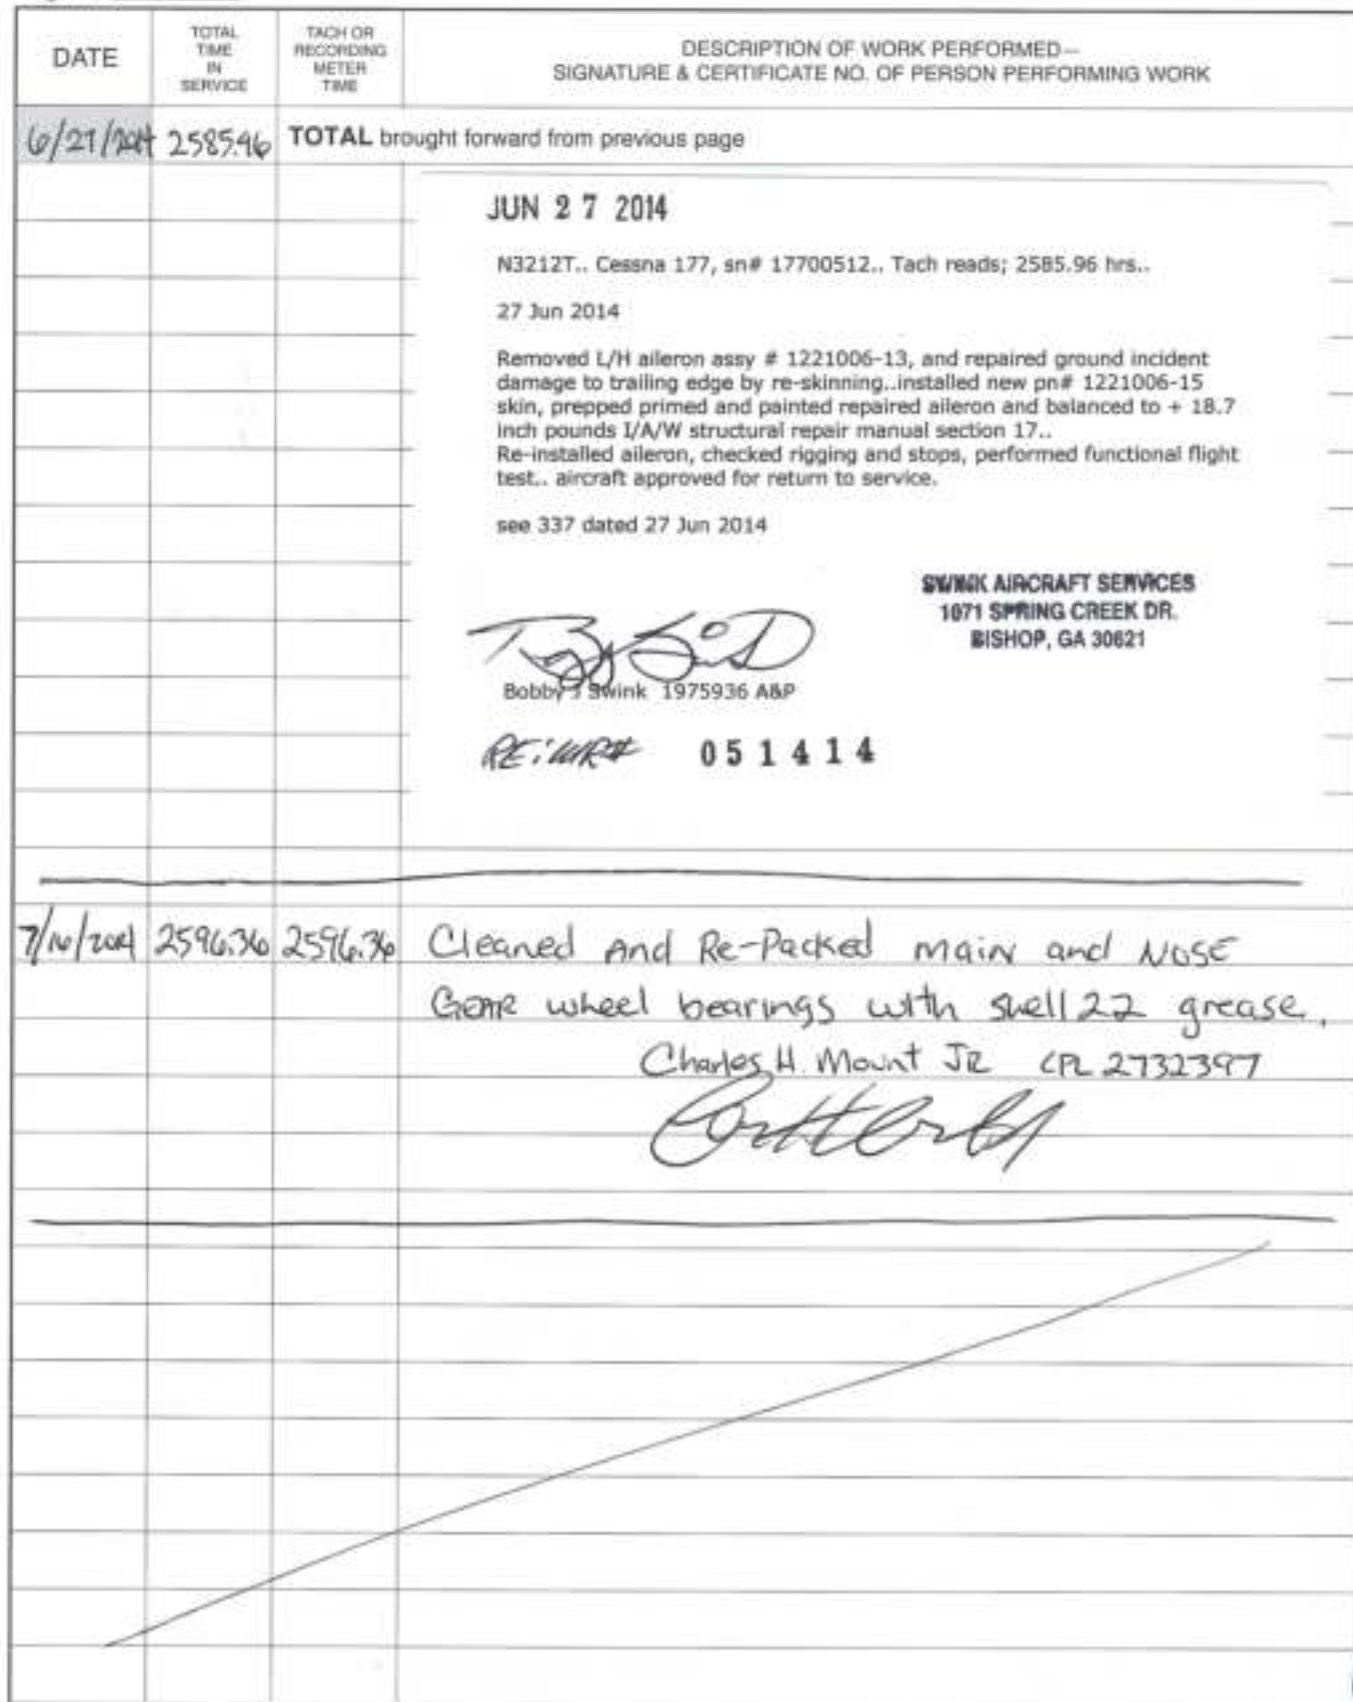 DATE
TOTAL
TIME
IN
SERVICE
TACH OR
RECORDING
METER
TIME
DESCRIPTION OF WORK PERFORMED—
SIGNATURE & CERTIFICATE NO. OF PERSON PERFORMING WORK
6/27/2014 2585.96 TOTAL brought forward from previous page
JUN 27 2014
N3212T.. Cessna 177, sn# 17700512.. Tach reads; 2585.96 hrs..
27 Jun 2014
Removed L/H aileron assy # 1221006-13, and repaired ground incident
damage to trailing edge by re-skinning..installed new pn# 1221006-15
skin, prepped primed and painted repaired aileron and balanced to + 18.7
inch pounds I/A/W structural repair manual section 17..
Re-installed aileron, checked rigging and stops, performed functional flight
test.. aircraft approved for return to service.
see 337 dated 27 Jun 2014
SWINK AIRCRAFT SERVICES
1071 SPRING CREEK DR.
BISHOP, GA 30621
Bobby J Swink 1975936 A&P
RE: WR# 051414
7/16/2014 2596.36 2596.36 Cleaned And Re-Packed main and NOSE
GEAR wheel bearings with shell 22 grease.
Charles H. Mount JR CPL 2732397